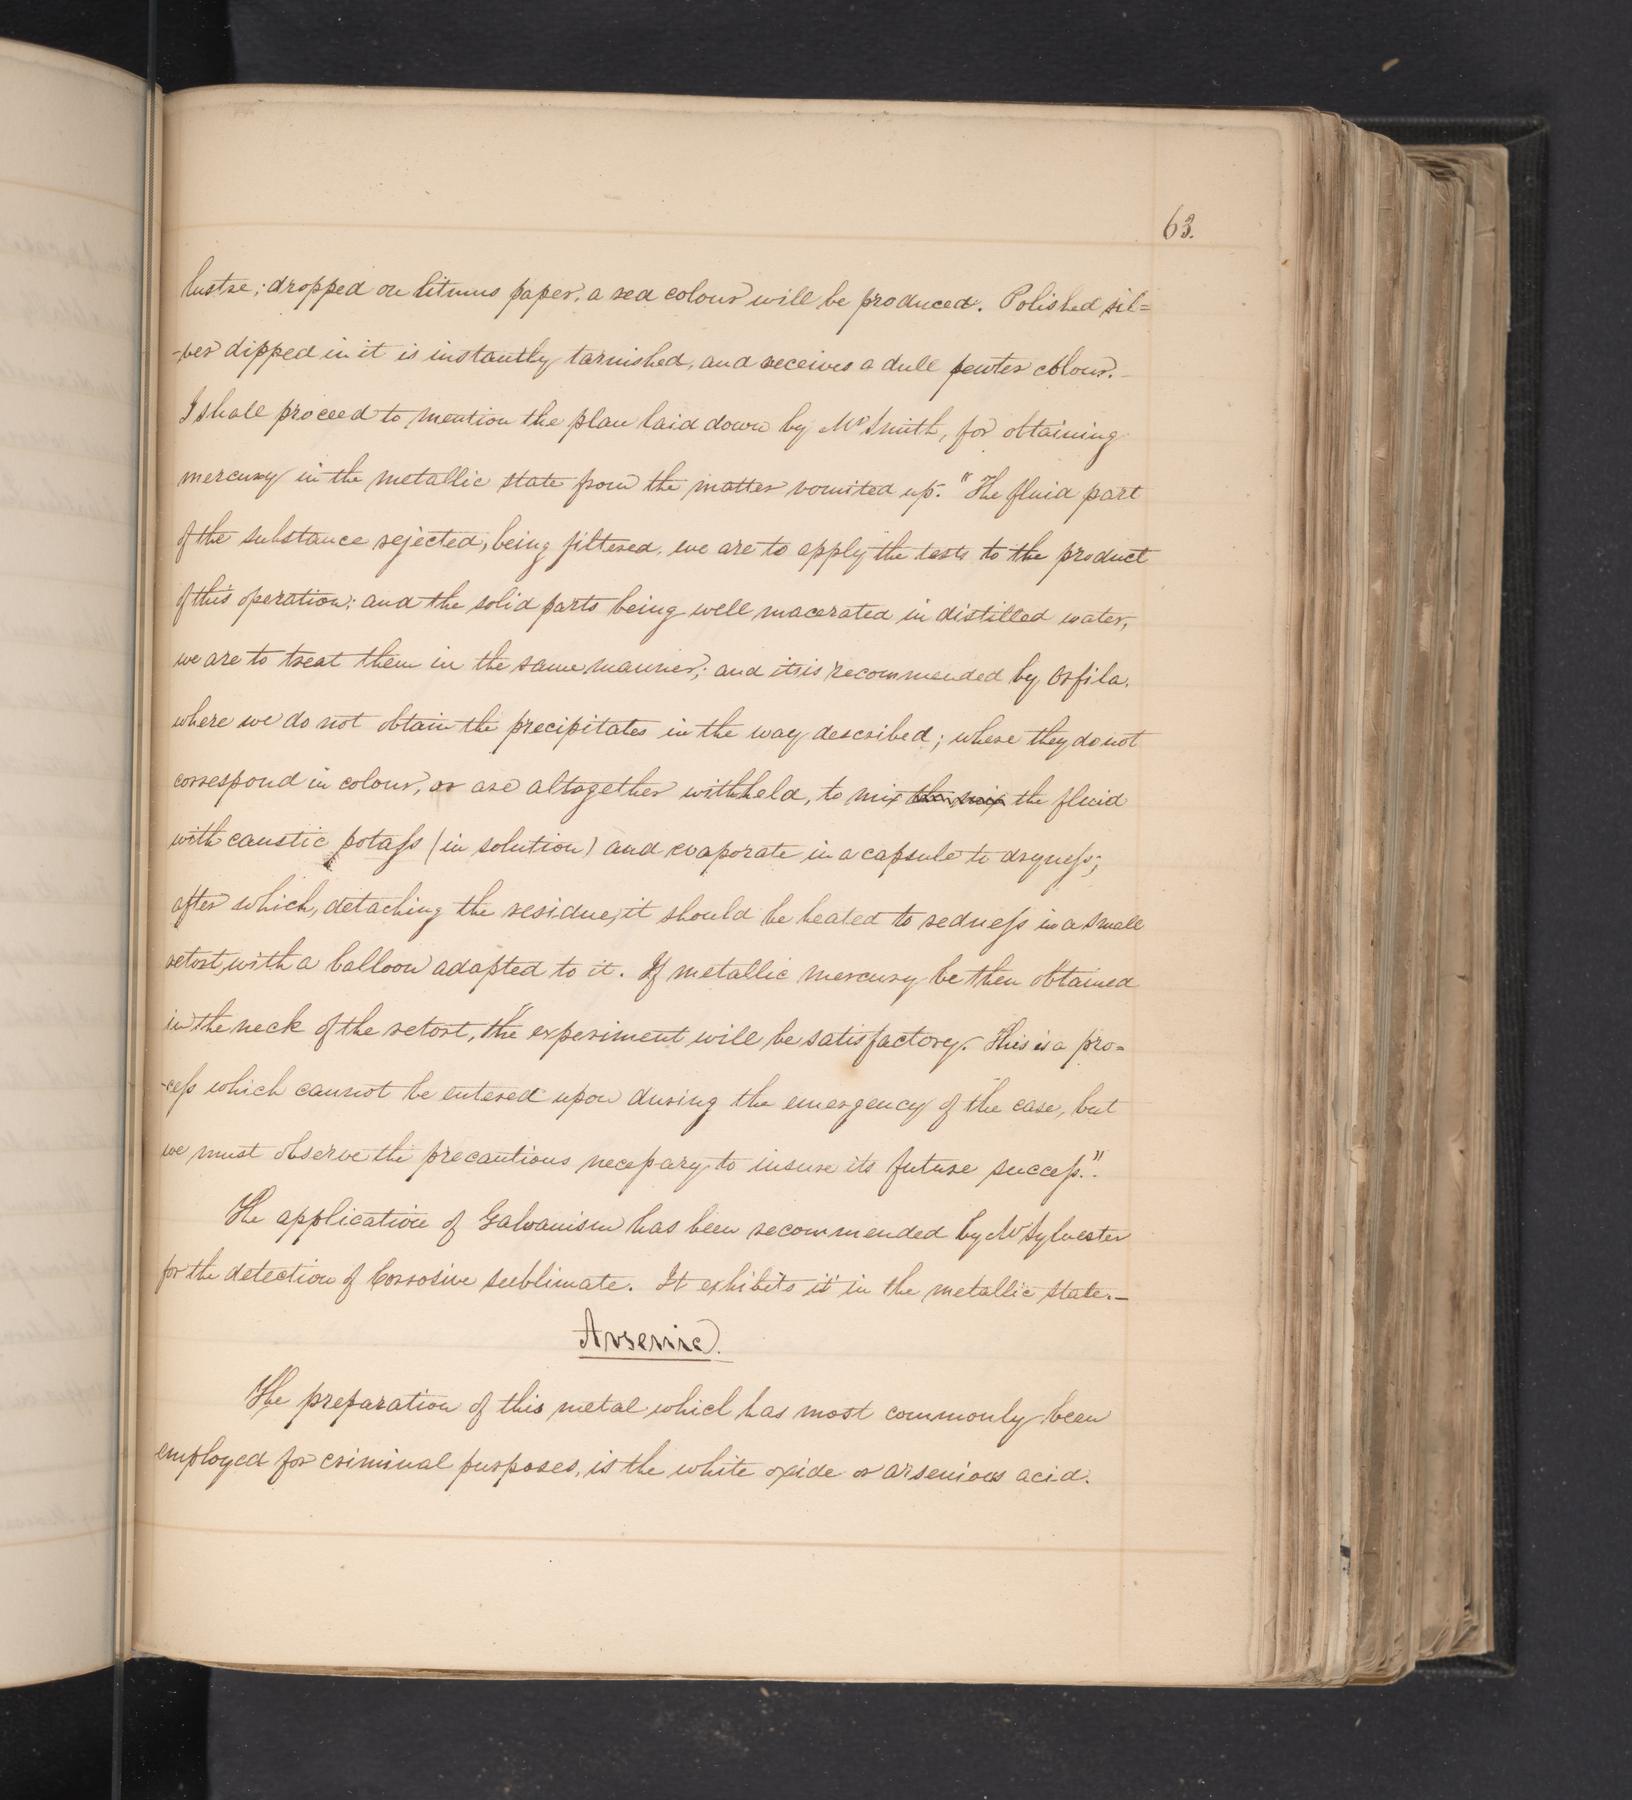 63.
lustre; dropped on litmus paper, a red colour will be produced. Polished sil=
-ver dipped in it is instantly tarnished, and receives a dull pewter colour.—
I shall proceed to mention the plan laid down by Mr Smith, for obtaining
mercury in the metallic state from the matter vomited up. "The fluid part
of the substance rejected, being filtered, we are to apply the tests to the product
of this operation; and the solid parts being well macerated in distilled water,
we are to treat them in the same manner; and it is recommended by Orfila,
where we do not obtain the precipitates in the way described; where they do not
correspond in colour, or are altogether withheld, to mix then mix the fluid
with caustic potass (in solution) and evaporate in a capsule to dryness;
after which, detaching the residue, it should be heated to redness in a small
retort, with a balloon adapted to it. If metallic mercury be then obtained
in the neck of the retort, "the experiment will be satisfactory. This is a pro=
-cess which cannot be entered upon during the emergency of the case, but
we must observe the precautions necessary to insure its future success.".
The application of Galvanism has been recommended by Mr Sylvester
for the detection of Corrosive sublimate. It exhibits it in the metallic state.—
Arsenic.
The preparation of this metal which has most commonly been
employed for criminal purposes, is the white oxide or arsenious acid.